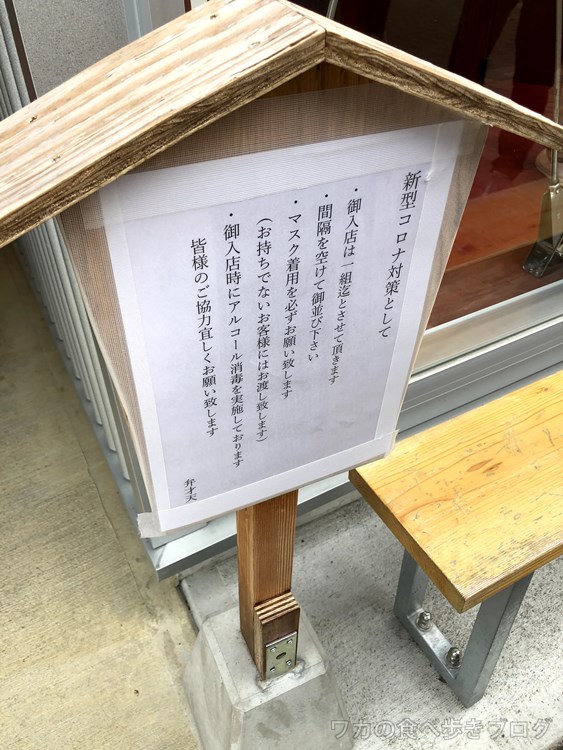 新型コロナ対策として
・御入店は一組迄とさせて頂きます
・間隔を空けて御並び下さい
・マスク着用を必ずお願い致します
(お持ちでないお客様にはお渡し致します)
・御入店時にアルコール消毒を実施しております
皆様のご協力宜しくお願い致します
弁才天
ワカの食べ歩きブログ